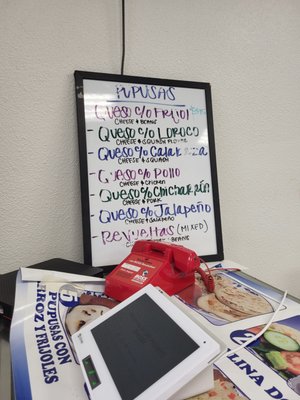 PUPUSAS
QUESO c/o FRIJOL
CHEESE & BEANS
- QUESO c/o LOROCO
CHEESE & SQUASH FLOWER
- QUESO c/o CALABAZA
CHEESE & SQUASH
- QUESO c/o POLLO
CHEESE & CHICKEN
- QUESO c/o CHICHARRÓN
CHEESE & PORK
- QUESO c/o JALAPEÑO
CHEESE & JALAPEÑO
REVUELTAS (MIXED)
BEANS
PUPUSAS CON
ARROZ Y FRIJOLES